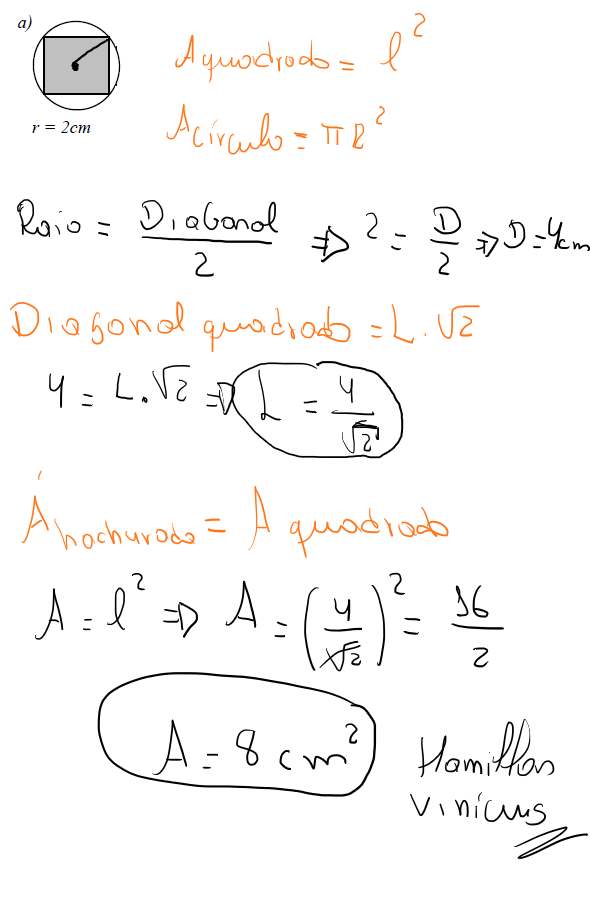 a)
A quadrado = l²
r = 2cm
A círculo = πR²
Raio = Diagonal/2 ⇒ 2 = D/2 ⇒ D = 4cm
Diagonal quadrado = L.√2
4 = L.√2 ⇒ L = 4/√2
Á hachurada = A quadrado
A = l² ⇒ A = (4/√2)² = 16/2
A = 8cm²
Hamillton
Vinícius